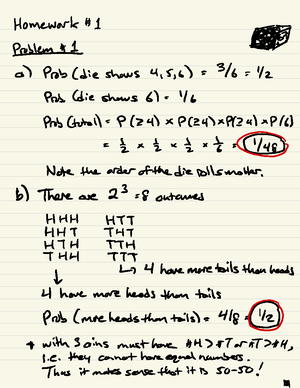 Homework #1
Problem #1
a) Prob (die shows 4,5,6) = 3/6 = 1/2
Prob (die shows 6) = 1/6
Prob (total) = P(≥4) × P(≥4) × P(≥4) × P(6)
= 1/2 × 1/2 × 1/2 × 1/6 = 1/48
Note the order of the die rolls matter.
b) There are 2³ = 8 outcomes
HHH HTT
HHT THT
HTH TTH
THH TTT
↳ 4 have more tails than heads
↓
4 have more heads than tails
Prob (more heads than tails) = 4/8 = 1/2
* with 3 coins must have #H > #T or #T > #H,
i.e. they cannot have equal numbers.
Thus it makes sense that it is 50-50!